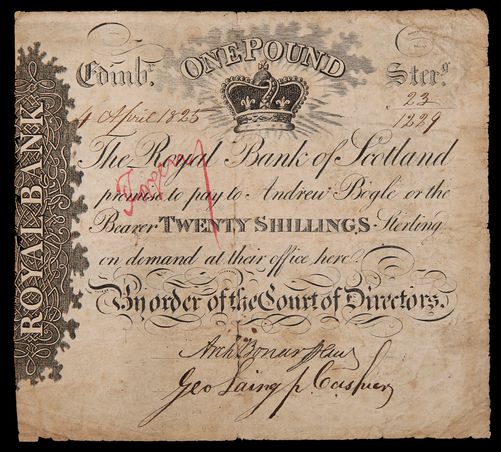 ROYAL BANK
ONE POUND
Edinbr. Sterg.
4 April 1825 23
1229
The Royal Bank of Scotland
promise to pay to Andrew Bogle or the
Bearer TWENTY SHILLINGS Sterling
on demand at their office here
By order of the Court of Directors.
Archd Bonar
Geo Laing p. Cashier